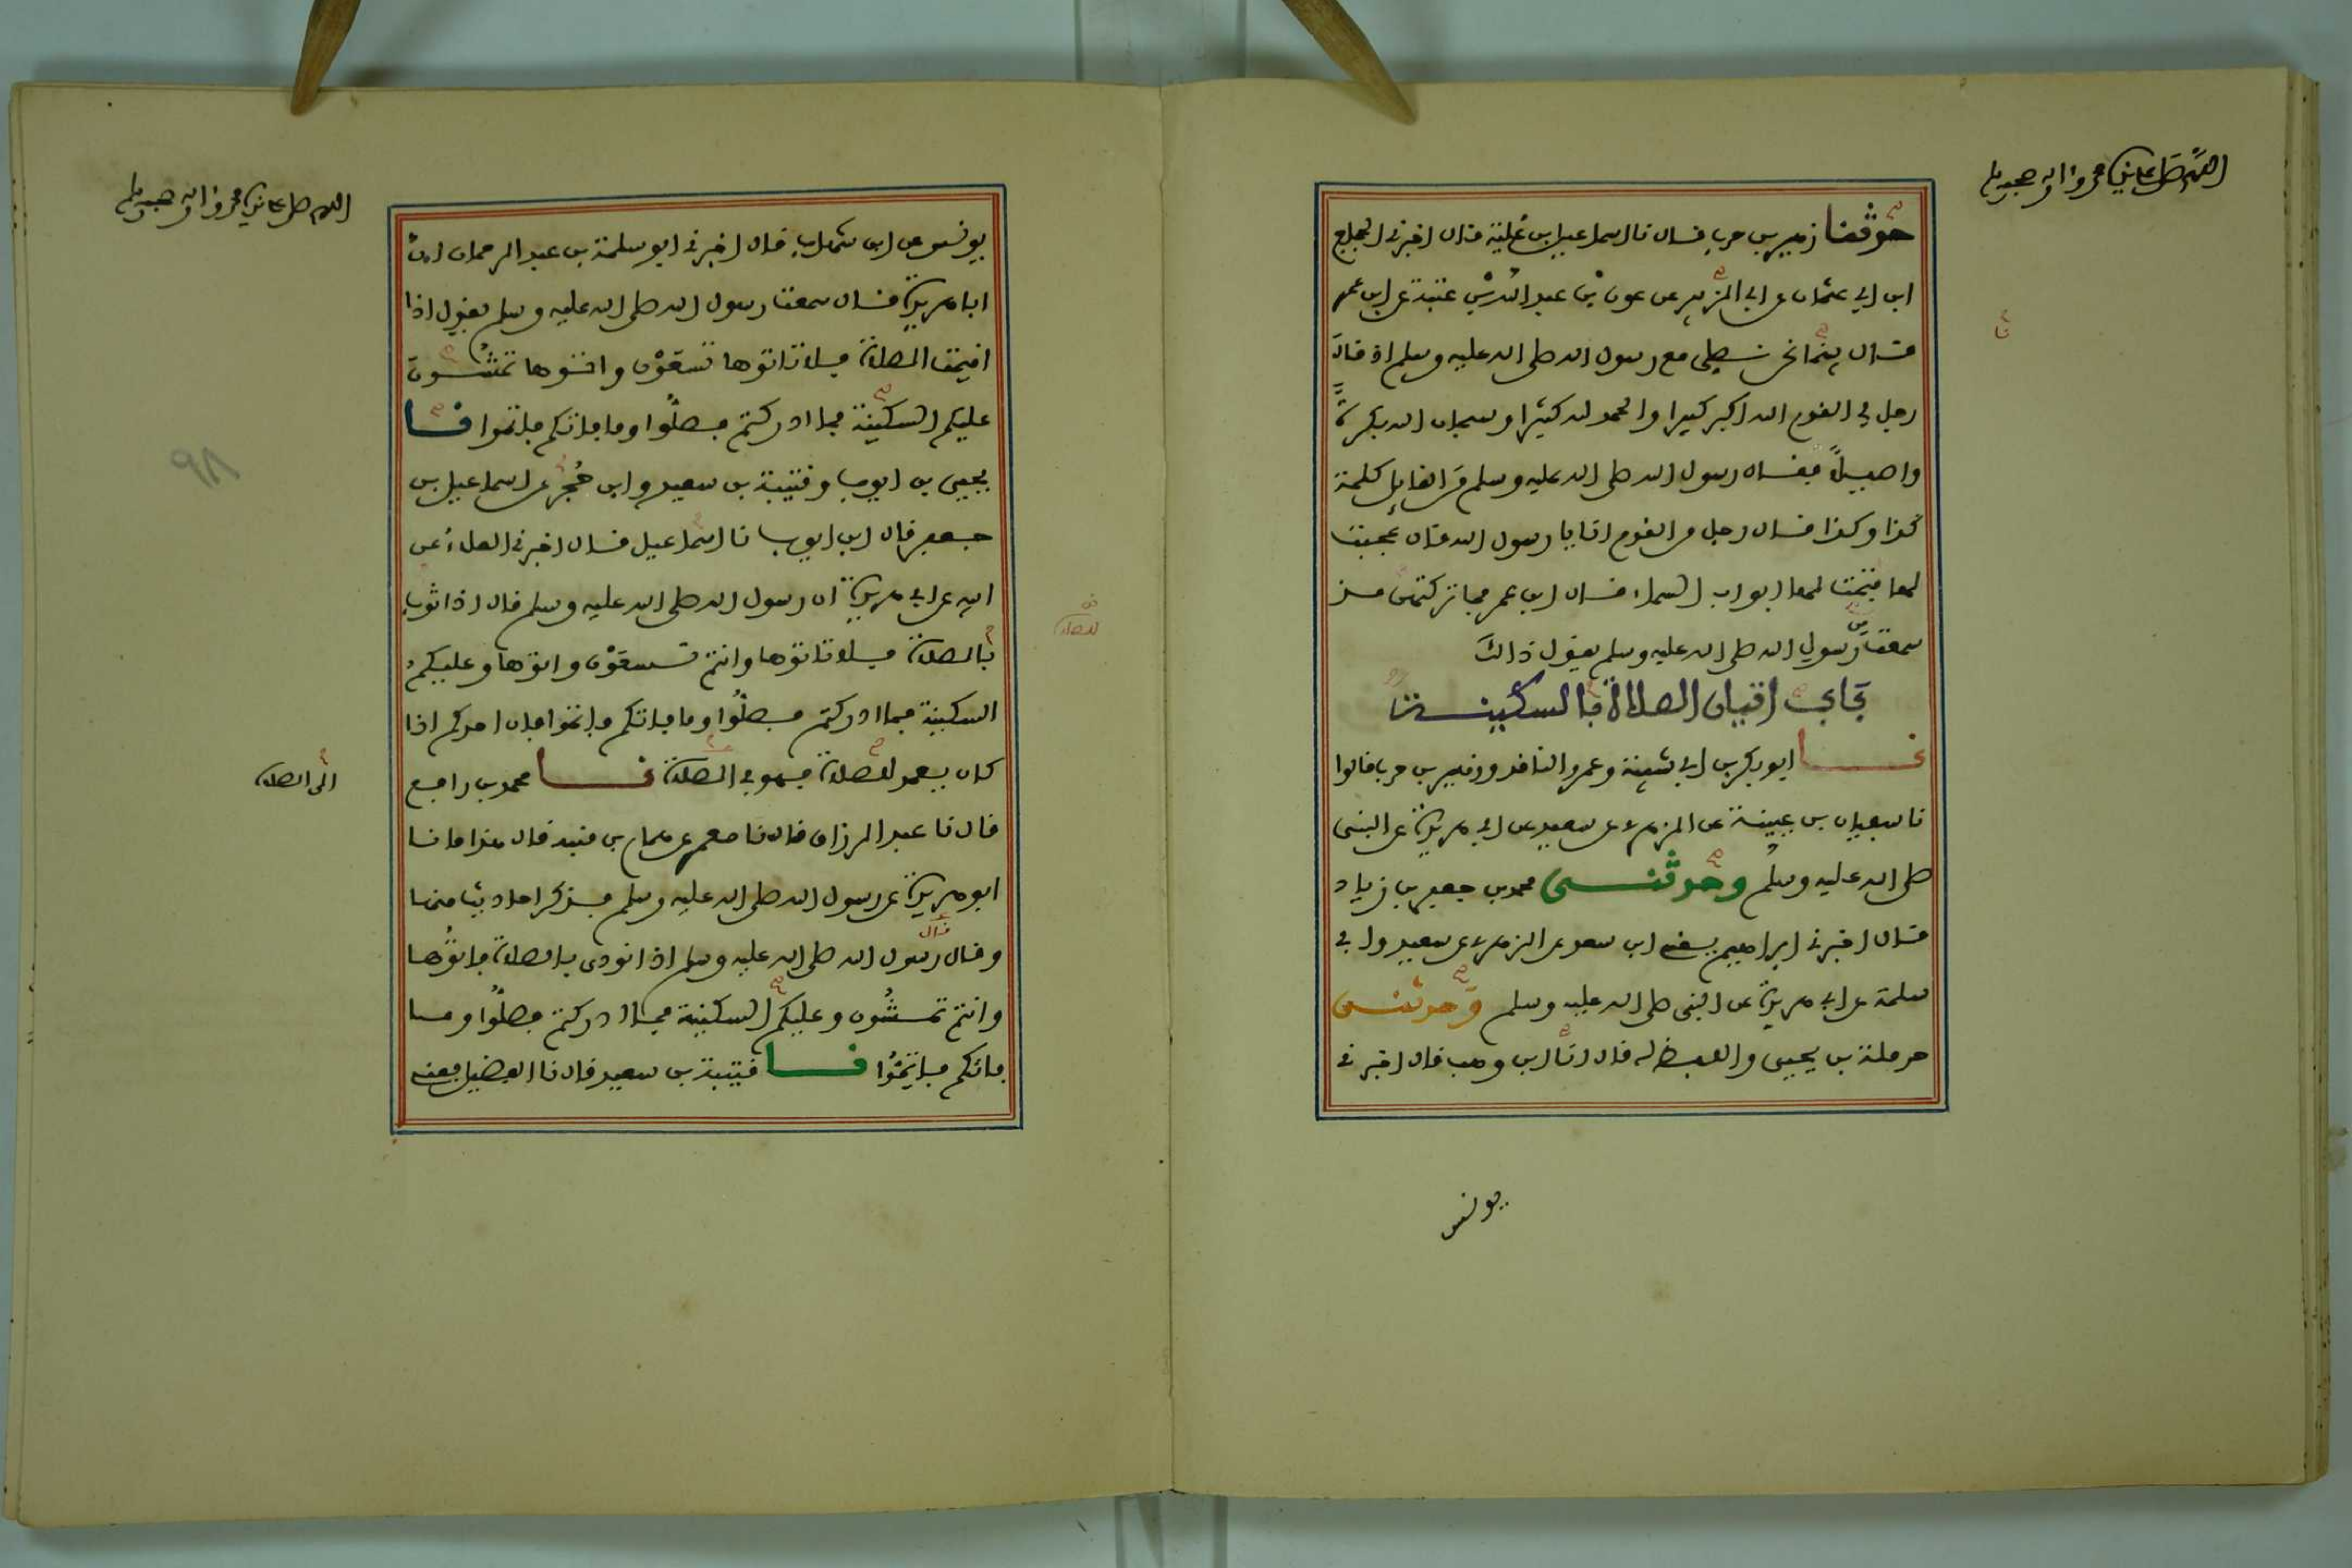 اللهم صل على سيدنا محمد واله وصحبه وسلم
حدثنا زهير بن حرب قال نا اسماعيل بن علية قال اخبرني الحجاج
ابن ابي عثمان عن ابي الزبير عن عون بن عبد الله بن عتبة عن ابن عمر
قال بينما نحن نصلي مع رسول الله صلى الله عليه وسلم اذ قال
نا
رجل في القوم الله اكبر كبيرا والحمد لله كثيرا وسبحان الله بكرة
واصيلا فقال رسول الله صلى الله عليه وسلم من القايل كلمة
كذا وكذا فقال رجل من القوم انا يا رسول الله قال عجبت
لها فتحت لها ابواب السماء قال ابن عمر فما تركتهن منذ
سمعت رسول الله صلى الله عليه وسلم يقول ذالك
باب اتيان الصلاة بالسكينة
نا ابو بكر بن ابي شيبة وعمرو الناقد وزهير بن حرب قالوا
نا سفيان بن عيينة عن الزهري عن سعيد عن ابي هريرة عن النبي
صلى الله عليه وسلم وحدثني محمد بن جعفر بن زياد
قال اخبرني ابراهيم يعني ابن سعد عن الزهري عن سعيد وابي
سلمة عن ابي هريرة عن النبي صلى الله عليه وسلم وحدثني
حرملة بن يحيى واللفظ له قال انا ابن وهب قال اخبرني
يونس
اللهم صل على سيدنا محمد واله وصحبه وسلم
يونس عن ابن شهاب قال اخبرني ابو سلمة بن عبد الرحمان ان
ابا هريرة قال سمعت رسول الله صلى الله عليه وسلم يقول اذا
اقيمت الصلاة فلا تاتوها تسعون واتوها تمشون
عليكم السكينة فما ادركتم فصلوا وما فاتكم فاتموا نا
يحيى بن ايوب وقتيبة بن سعيد وابن حجر عن اسماعيل بن
٩٨
جعفر قال ابن ايوب نا اسماعيل قال اخبرني العلاء عن
ابيه عن ابي هريرة ان رسول الله صلى الله عليه وسلم قال اذا ثوب
للصلاة
بالصلاة فلا تاتوها وانتم تسعون واتوها وعليكم
السكينة فما ادركتم فصلوا وما فاتكم فاتموا فان احدكم اذا
كان يعمد للصلاة فهو في الصلاة نا محمد بن رافع
الى الصلاة
قال نا عبد الرزاق قال نا معمر عن همام بن منبه قال هذا ما نا
ابو هريرة عن رسول الله صلى الله عليه وسلم فذكر احاديث منها
قال
وقال رسول الله صلى الله عليه وسلم اذا نودي بالصلاة فاتوها
وانتم تمشون وعليكم السكينة فما ادركتم فصلوا وما
فاتكم فاتموا نا قتيبة بن سعيد قال نا الفضيل يعني